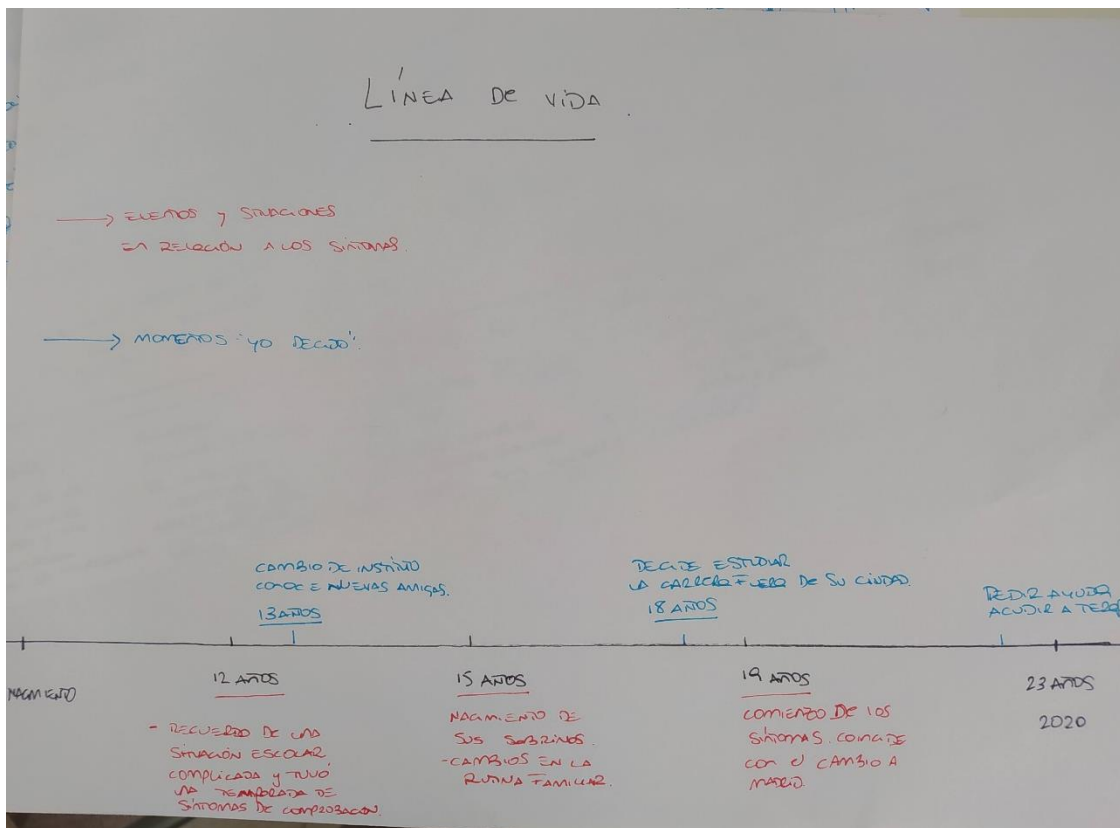 LÍNEA DE VIDA
→ EVENTOS y SITUACIONES
EN RELACIÓN A LOS SINTOMAS.
→ MOMENTOS "YO DECIDO".
CAMBIO DE INSTITUTO
CONOCE NUEVAS AMIGAS.
13 AÑOS
DECIDE ESTUDIAR
LA CARRERA FUERA DE SU CIUDAD.
18 AÑOS
PEDIR AYUDA
ACUDIR A TERA
NACIMIENTO
12 AÑOS
- RECUERDO DE UNA
SITUACIÓN ESCOLAR
COMPLICADA y TUVO
UNA TEMPORADA DE
SÍNTOMAS DE COMPROBACIÓN.
15 AÑOS
NACIMIENTO DE
SUS SOBRINOS.
- CAMBIOS EN LA
RUTINA FAMILIAR.
19 AÑOS
COMIENZO DE LOS
SÍNTOMAS. COINCIDE
CON el CAMBIO A
MADRID.
23 AÑOS
2020